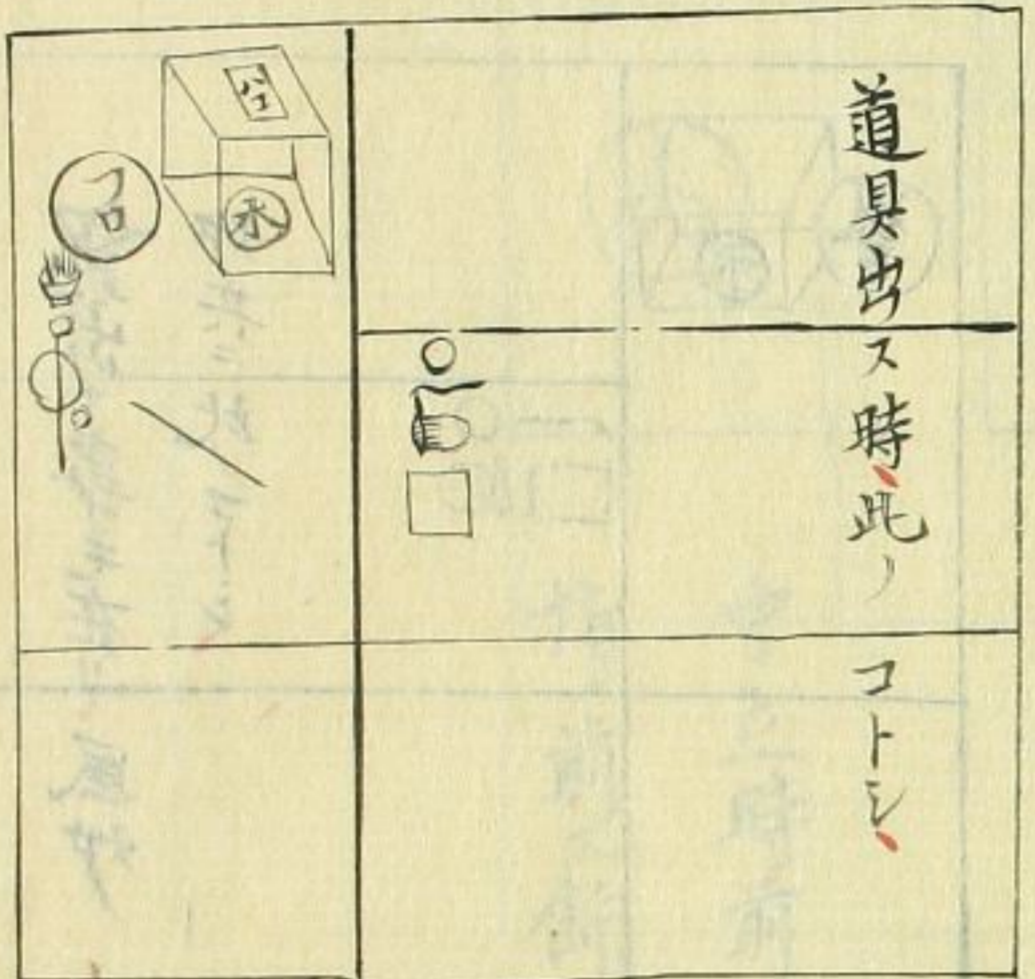 道具出ス時、此ノコトシ、
ハコ
水
フロ